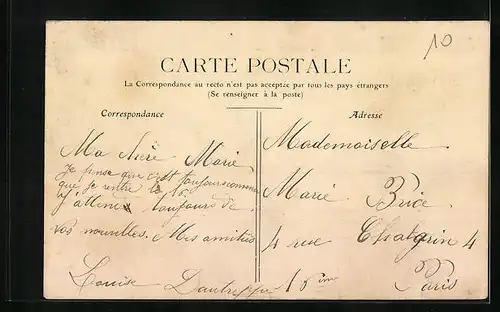 10
CARTE POSTALE
La Correspondance au recto n'est pas acceptée par tous les pays étrangers
(Se renseigner à la poste)
Correspondance
Ma chère Marie
Je pense que c'est toujours comme
que je rentre le 16
J'attend toujours de
vos nouvelles. Mes amitiés
Louise
Adresse
Mademoiselle
Marie Brice
4 rue Chalgrin 4
16 eme
Paris